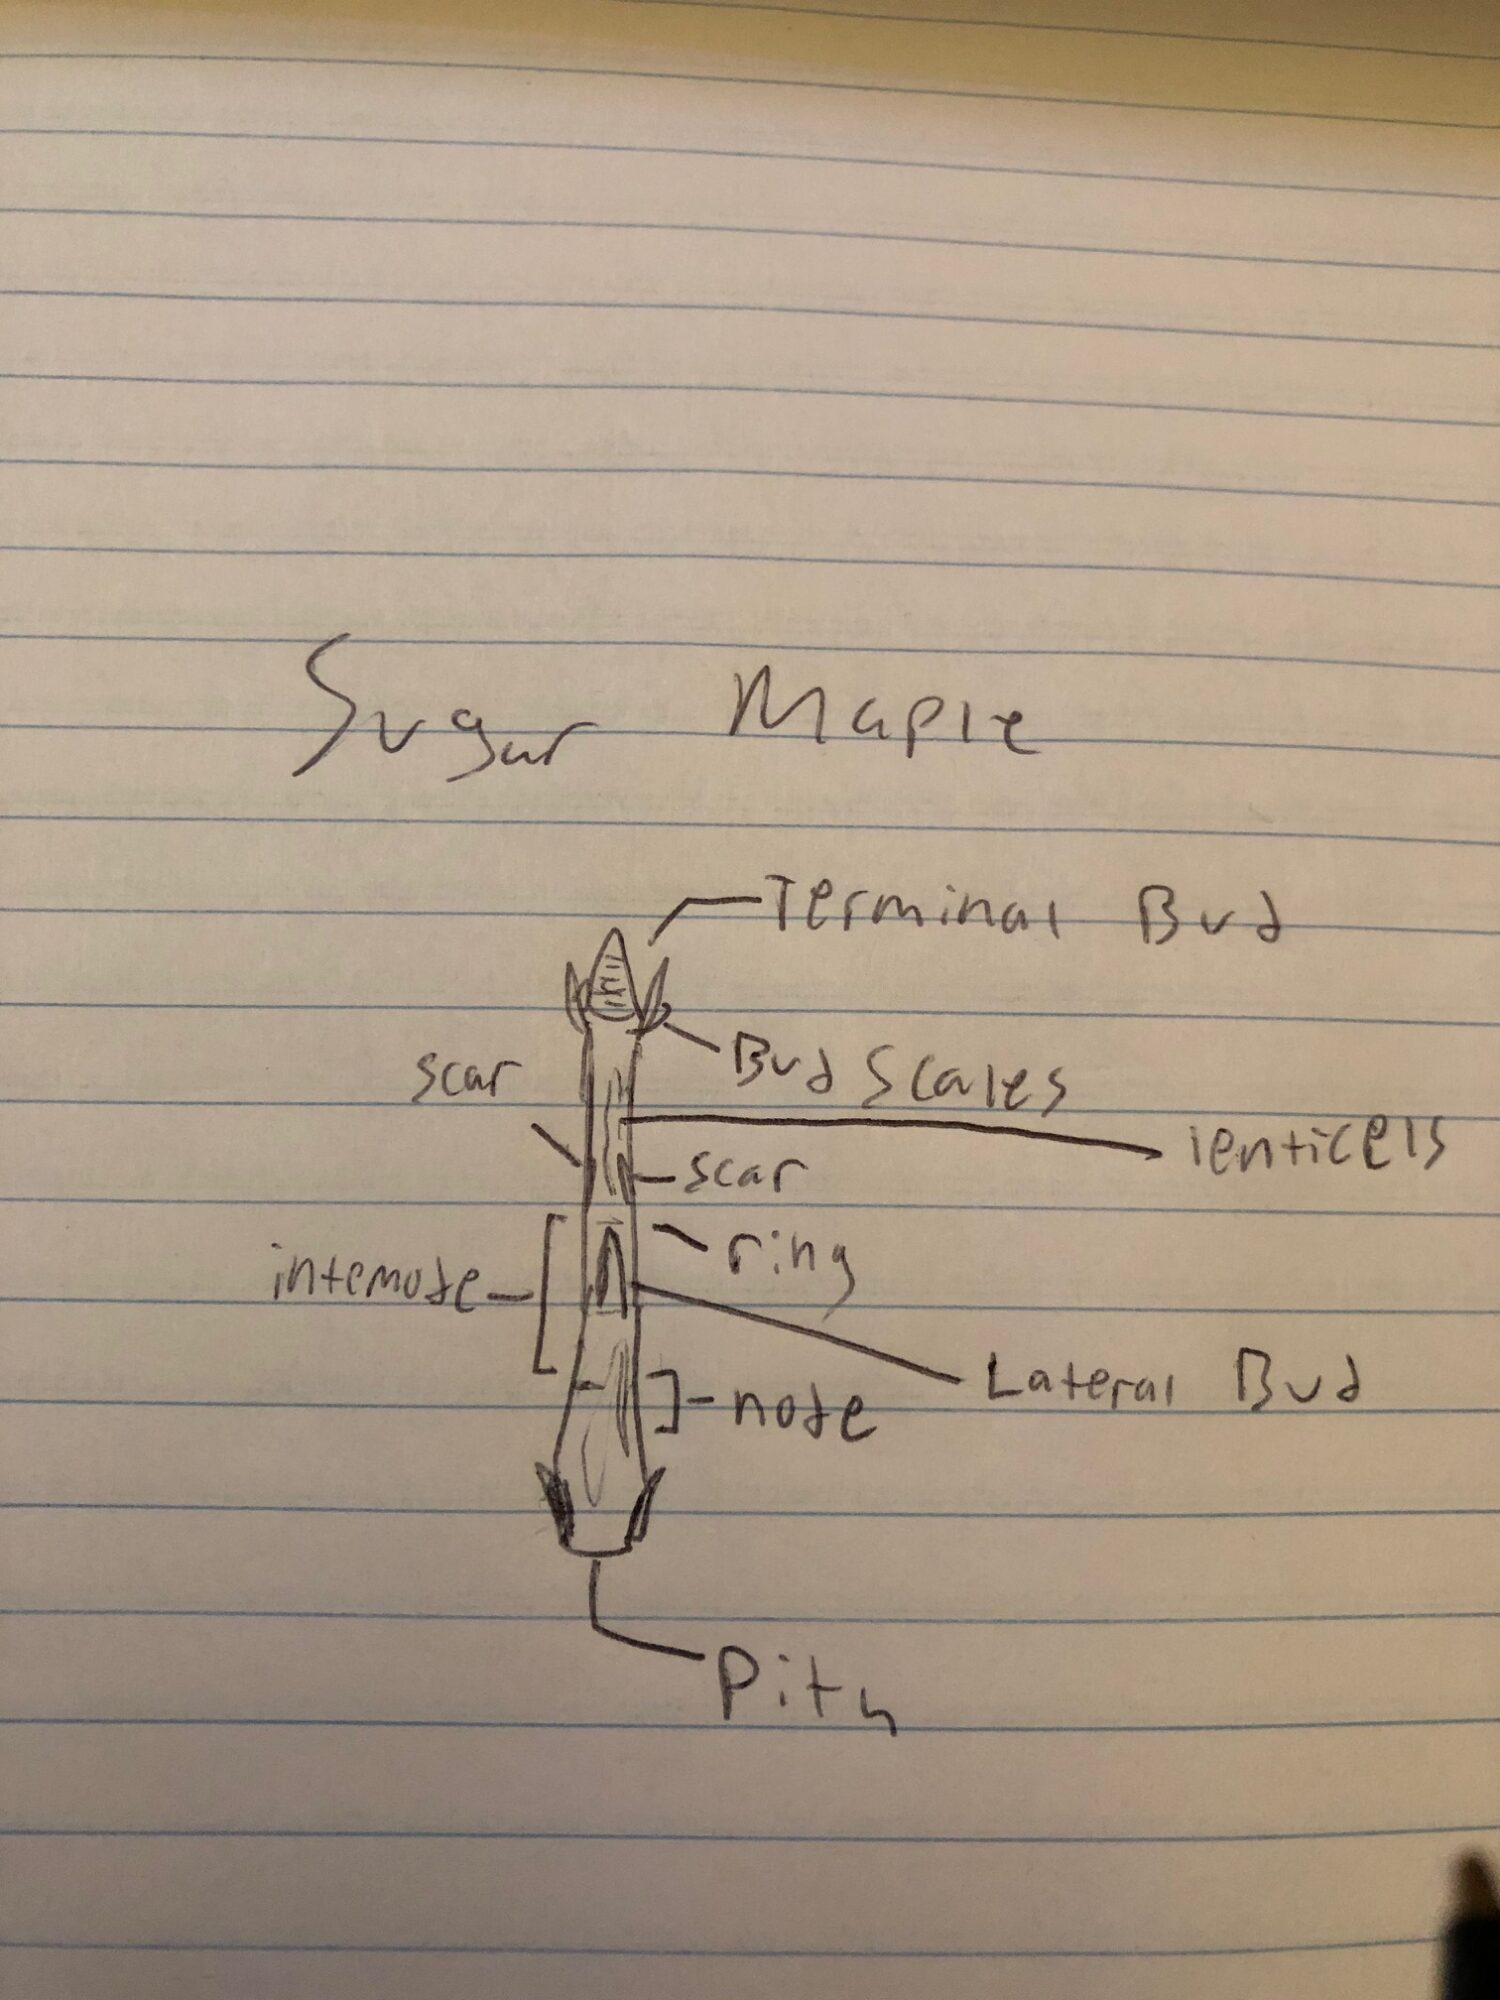 Sugar Maple
Terminal Bud
Bud Scales
scar
lenticels
scar
ring
internode
Lateral Bud
node
Pith